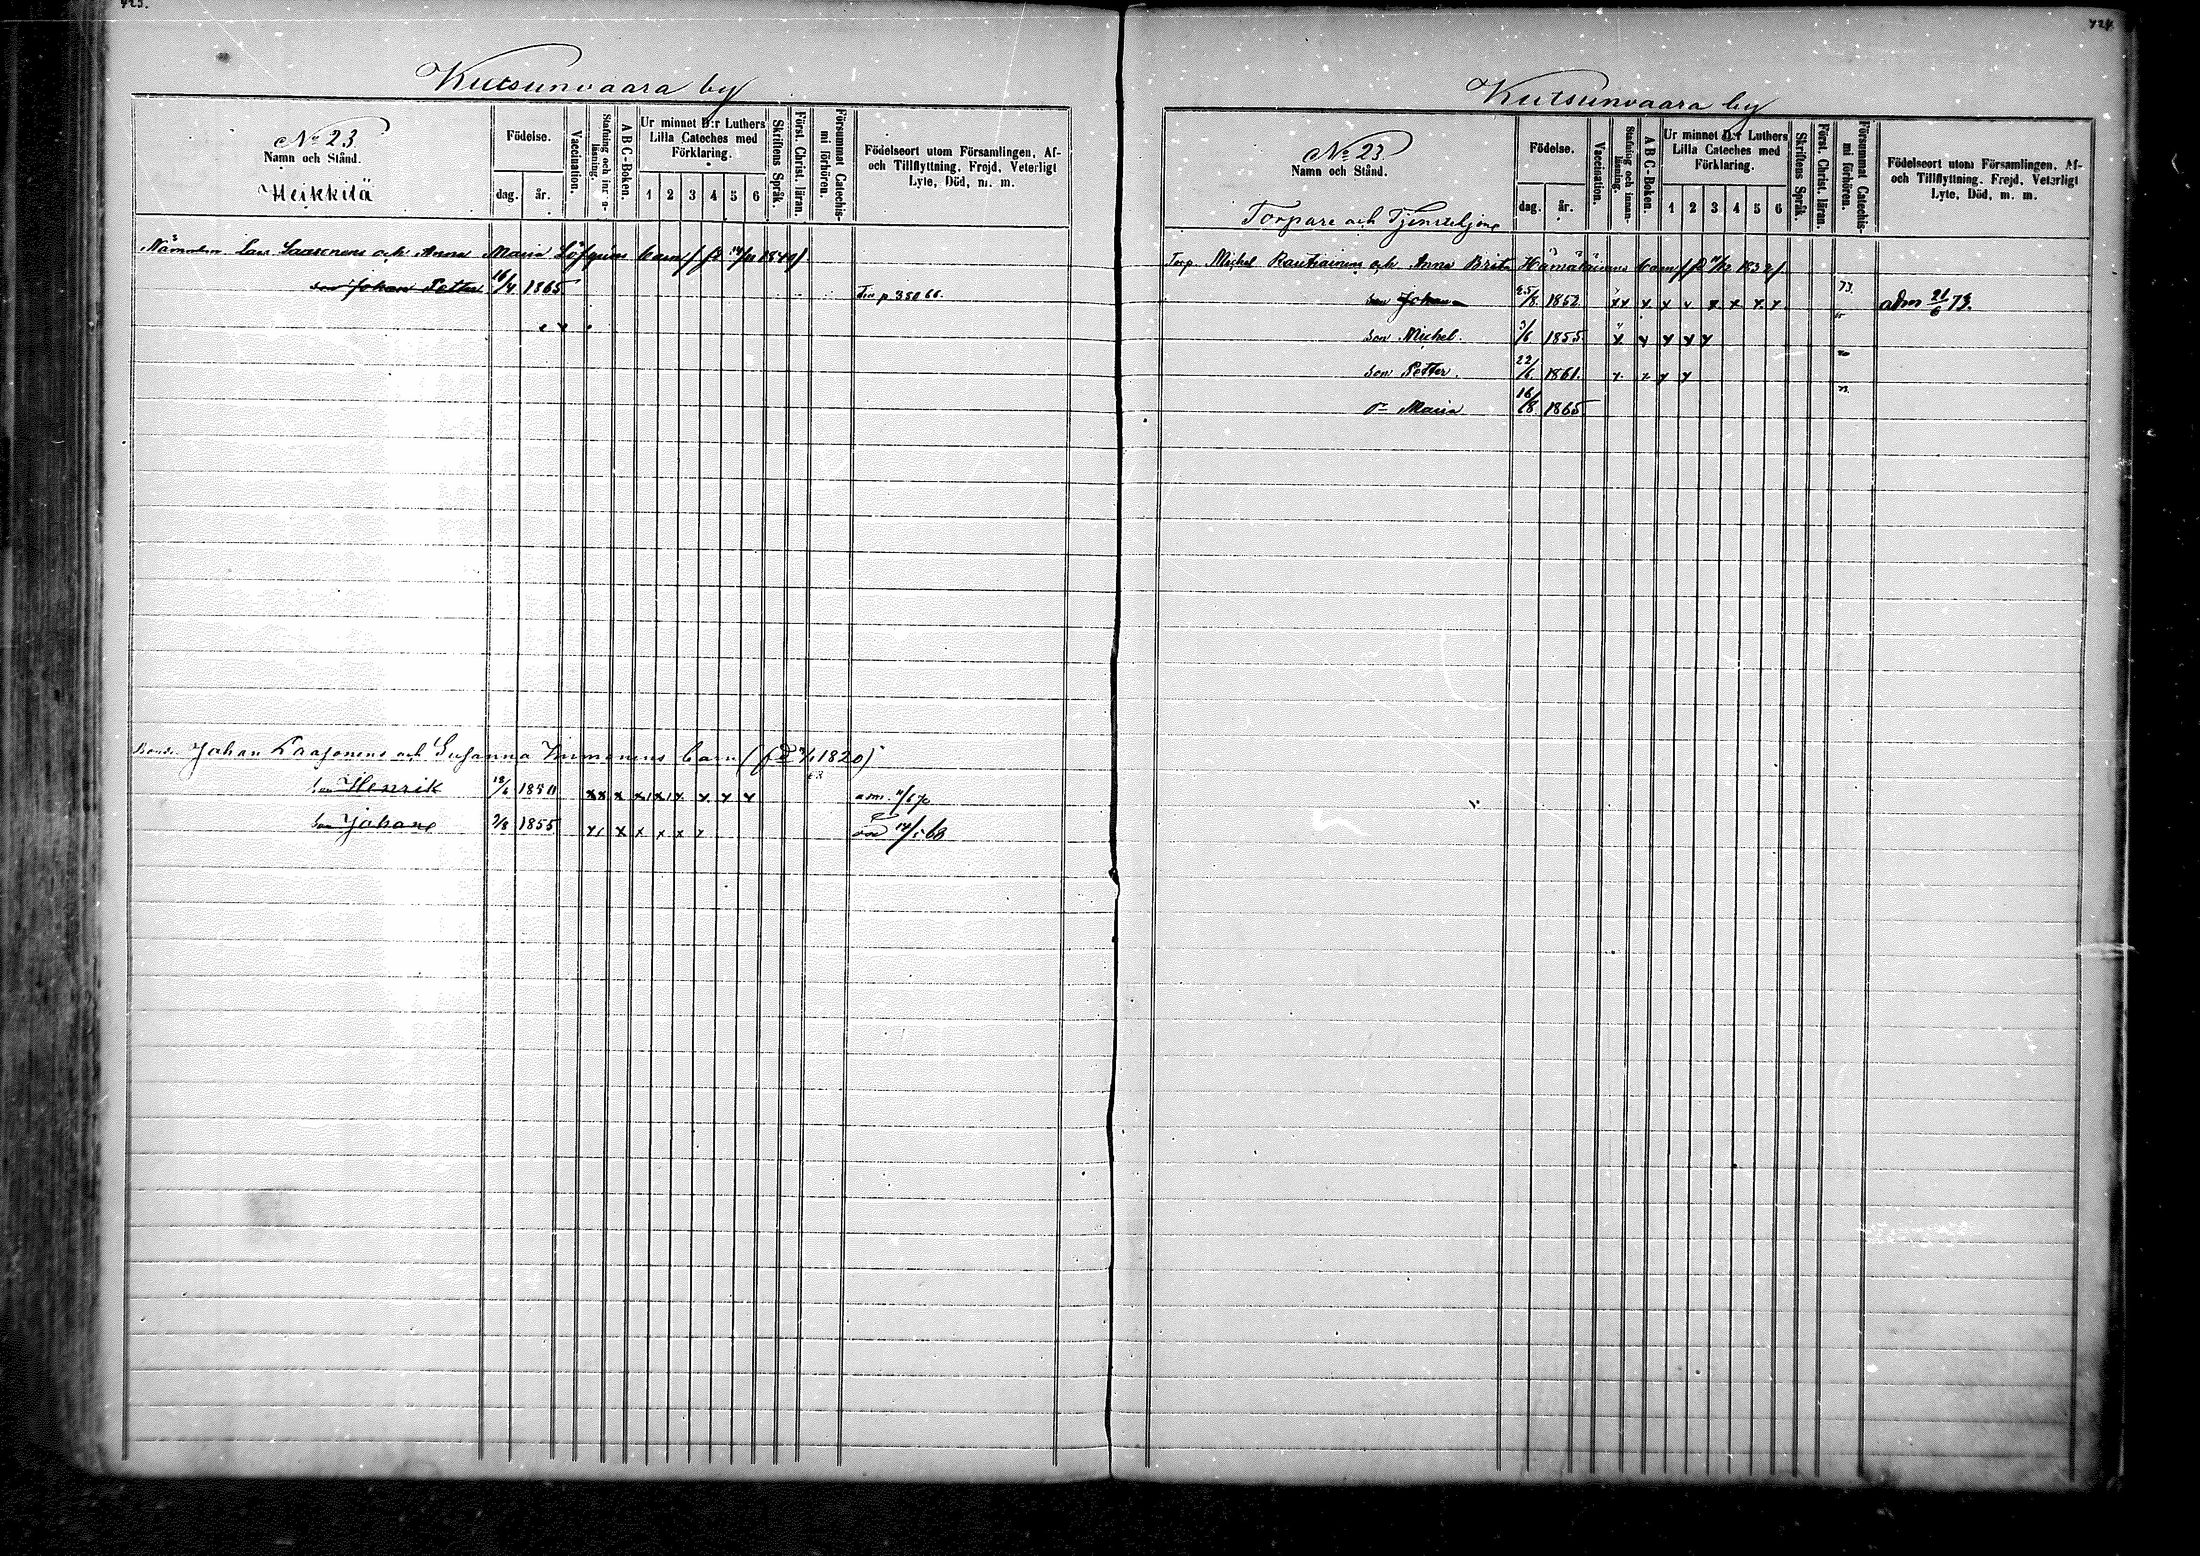 423.
Kutsunvaara by
No 23
Namn och Stånd.
Heikkilä
Födelse.
dag. år.
Vaccination.
Stafning och innanläsning.
A B C-Boken.
Ur minnet D:r Luthers Lilla Cateches med Förklaring.
1 2 3 4 5 6
Skriftens Språk.
Först. Christ. läran.
Försummat Catechismi förhören.
Födelseort utom Församlingen, Af-
och Tillflyttning, Frejd, Veterligt
Lyte, Död, m. m.
Nämndem Lars Laasonens och Anna Maria Löfgrens barn
son Johan Petter 16/4 1865
Bond. Johan Laasonens och Susanna Immonens barn 1820)
son Henrik 13/6 1850 x x x x x x x x x adm.
son Johan 2/8 1855 x x x x x
424
Kutsunvaara by
No 23
Namn och Stånd.
Torpare och Tjenstehjon
Födelse.
dag. år.
Vaccination.
Stafning och innanläsning.
A B C-Boken.
Ur minnet D:r Luthers Lilla Cateches med Förklaring.
1 2 3 4 5 6
Skriftens Språk.
Först. Christ. läran.
Försummat Catechismi förhören.
Födelseort utom Församlingen, Af-
och Tillflyttning, Frejd, Veterligt
Lyte, Död, m. m.
Torp. Michel Rautiainens och Anna Brita Hämäläinens barn
son Johan 25/8 1852 x x x x x x x x x 73. adm 21/6 73.
son Michel. 3/6 1855 x x x x x
son Petter. 22/6 1861. x x x x
Dr Maria 16/8 1865